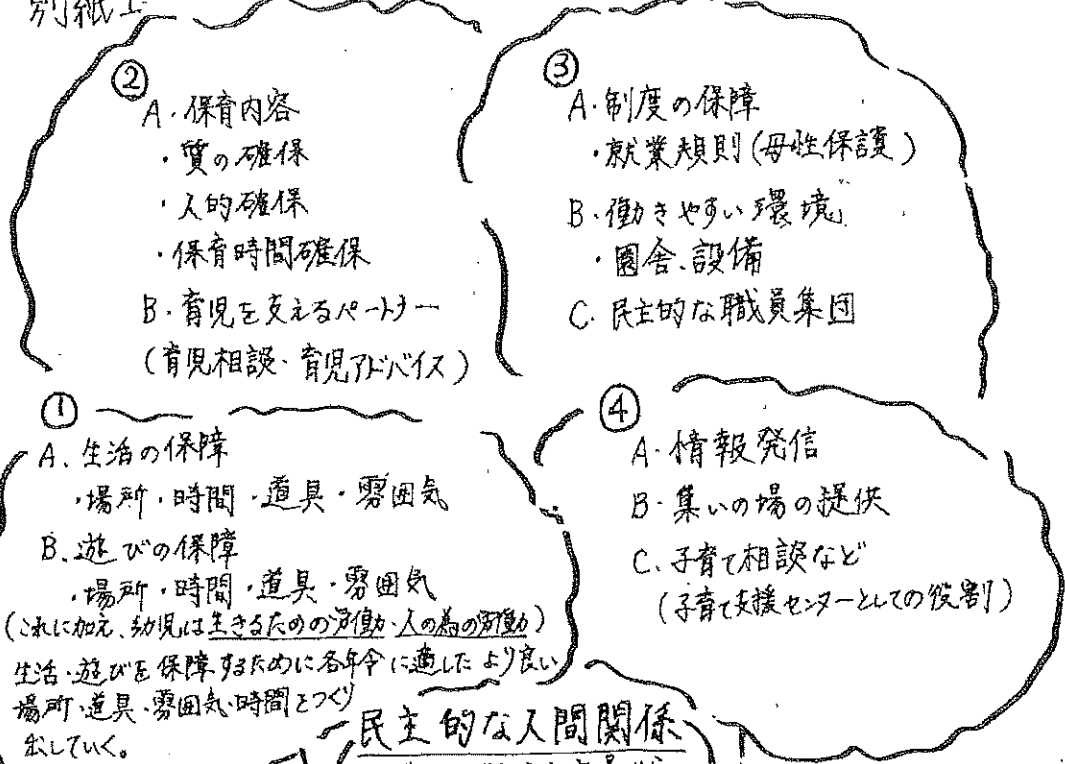 別紙1
②
A.保育内容
・質の確保
・人的確保
・保育時間確保
B.育児を支えるパートナー
(育児相談・育児アドバイス)
③
A.制度の保障
・就業規則(母性保護)
B.働きやすい環境
・園舎、設備
C.民主的な職員集団
①
A、生活の保障
・場所・時間・道具・雰囲気
B、遊びの保障
・場所・時間・道具・雰囲気
(これに加え、幼児は生きるための労働・人の為の労働)
生活・遊びを保障するために各年令に適したより良い
場所・道具・雰囲気・時間をつくり
出していく。
④
A.情報発信
B.集いの場の提供
C.子育て相談など
(子育て支援センターとしての役割)
民主的な人間関係